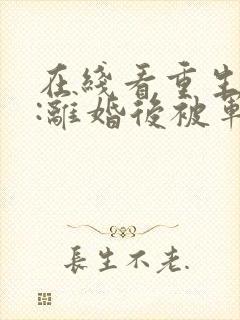 在綫看重生
:離婚後被軍
長生不老.